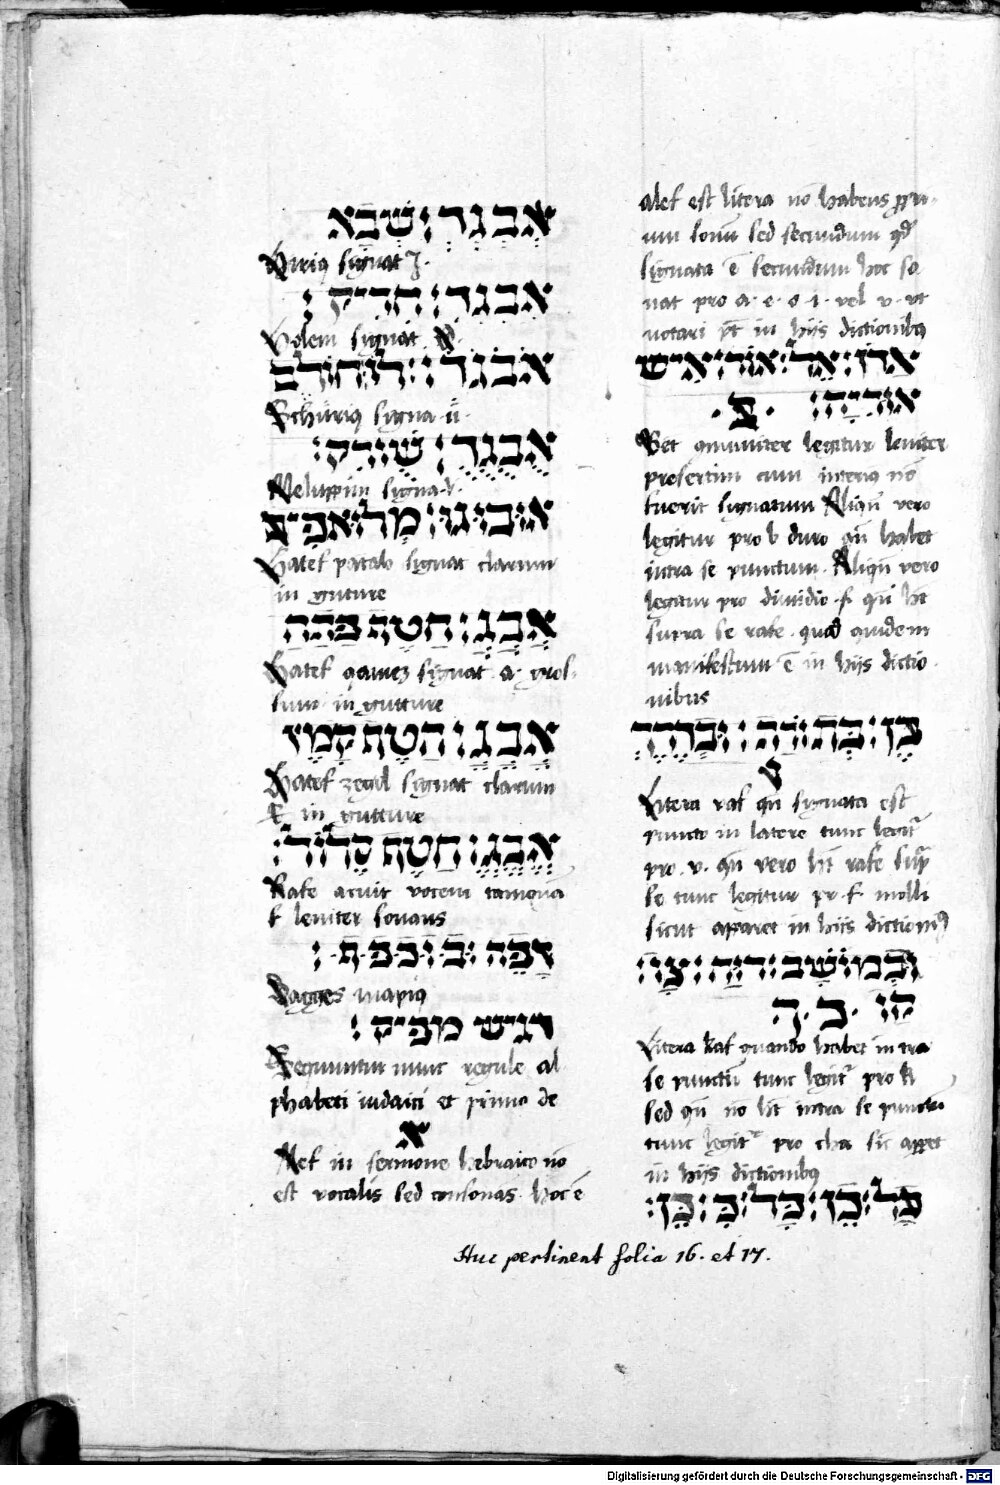 אְבְגְרְ׃ שְׁבָא
Hiriq signat I.
אִבִגִרִ׃ חִרִיק׃
Holem signat o.
אֹבֹגֹרֹ׃
Schuriq signa ü.
אֻבֻגֻרֻ׃ שֻׁירֻק׃
Meluppim signa v.
אוּבוּגוּ׃ מְלוּאפִים
Hatef patah signat clarum
in guture
אֲבֲגֲ׃ חַטֵף פַּתַח
Hatef qamez signat a gros
sum in gutture
אֳבֳגֳ׃ חַטֵף קָמֶץ
Hatef zegol signat clarum
E in gutture
אֱבֱגֱ׃ חַטֵף סֶגוֹל׃
Rafe acuit vocem tamquã
f leniter sonans
רָפֶה׃
Dagges mapiq
דגיש מפיק׃
Sequuntur nunc regule al
phabeti iudaici et primo de
א
Alef in sermone hebraico nõ
est vocalis sed consonas. hoc ẽ
alef est litera nõ habens propri
um sonũ sed secundum qd
signata ẽ secundum hoc so
nat pro a. e. o. i. vel v. ut
notari pt in hijs dictionibq
אָדֹן׃ אֵל׃ אוֹר׃ אִישׁ
אוּרִיָה׃ .ב.
Bet cõmuniter legitur leniter
presertim cum interiq nõ
fuerit signatum Aliqñ vero
legitur pro b duro qñ habet
intra se punctum. Aliqñ vero
legitur pro dimidio f. qñ ht
supra se rafe. quod quidem
manifestum ẽ in hijs dictio
nibus
ו
Litera vaf qñ signata est
puncto in latere tunc legitr
pro v. qñ vero ht rafe supr
se tunc legitur pr f. molli
sicut apparet in hijs dictionibq
וּבְמוֹשָׁב׃ דָוִד׃ צָו׃
קַו . כ . ך
Litera kaf quando habet intra
se punctũ tunc legitr pro k
sed qñ nõ ht intra se punctũ
tunc legitr pro cha sic apparet
in hijs dictionibq
כָּל׃ כֵּן׃ כָּל׃ כִּ׃ כֵּן׃
Huc pertinent folia 16. et 17.
Digitalisierung gefördert durch die Deutsche Forschungsgemeinschaft - DFG